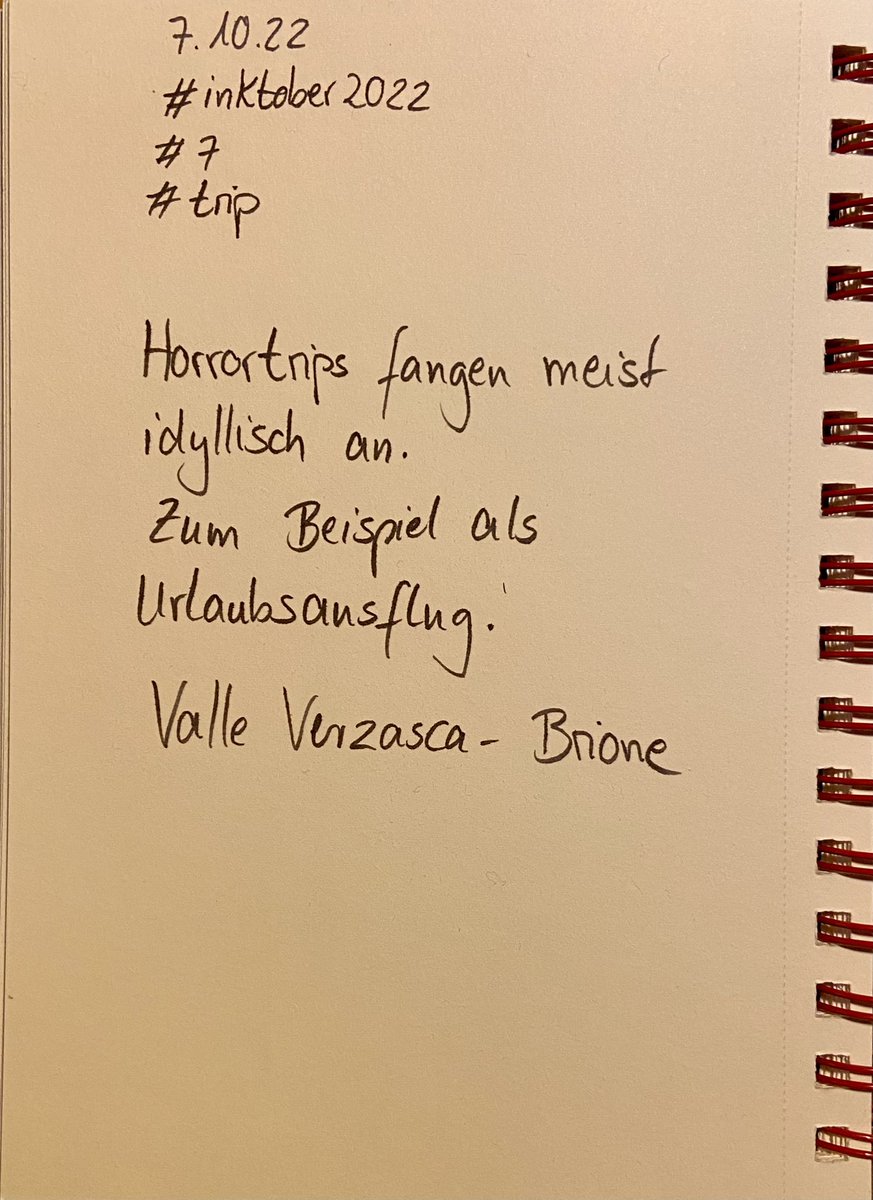 7.10.22
#inktober2022
#7
#trip
Horrortrips fangen meist
idyllisch an.
Zum Beispiel als
Urlaubsausflug.
Valle Verzasca - Brione